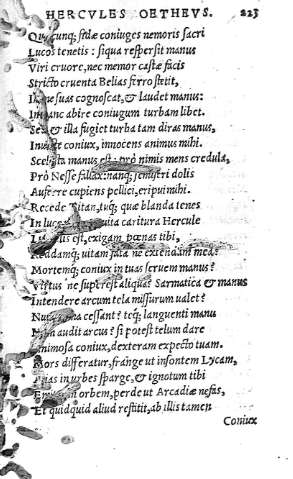 HERCVLES OETHEVS. 223
fidæ coniuges nemoris sacri
Lucos tenetis: siqua respersit manus
Viri cruore, nec memor castæ facis
Stricto cruenta Belias ferro stetit,
suas cognoscat, & laudet manus:
abire coniugum turbam libet.
& illa fugiet turba tam diras manus,
coniux, innocens animus mihi.
manus nimis mens credula,
Pro Nesse fallax: nanq; dolis
Auferre cupiens pellici, eripui mihi.
Recede Titan, tuq; quæ blanda tenes
In caritura Hercule
est, exigam pœnas tibi,
Mortemq; coniux in tuas seruem manus?
superest aliqua? Sarmatica & manus
Intendere arcum tela missurum ualet?
cessant? teq; languenti manu
audit arcus? si potest telum dare
Animosa coniux, dexteram expecto tuam.
Mors differatur, frange ut insontem Lycam,
in urbes sparge, & ignotum tibi
orbem, perde ut Arcadiæ nefas,
Et quidquid aliud restitit, ab illis tamen
Coniux